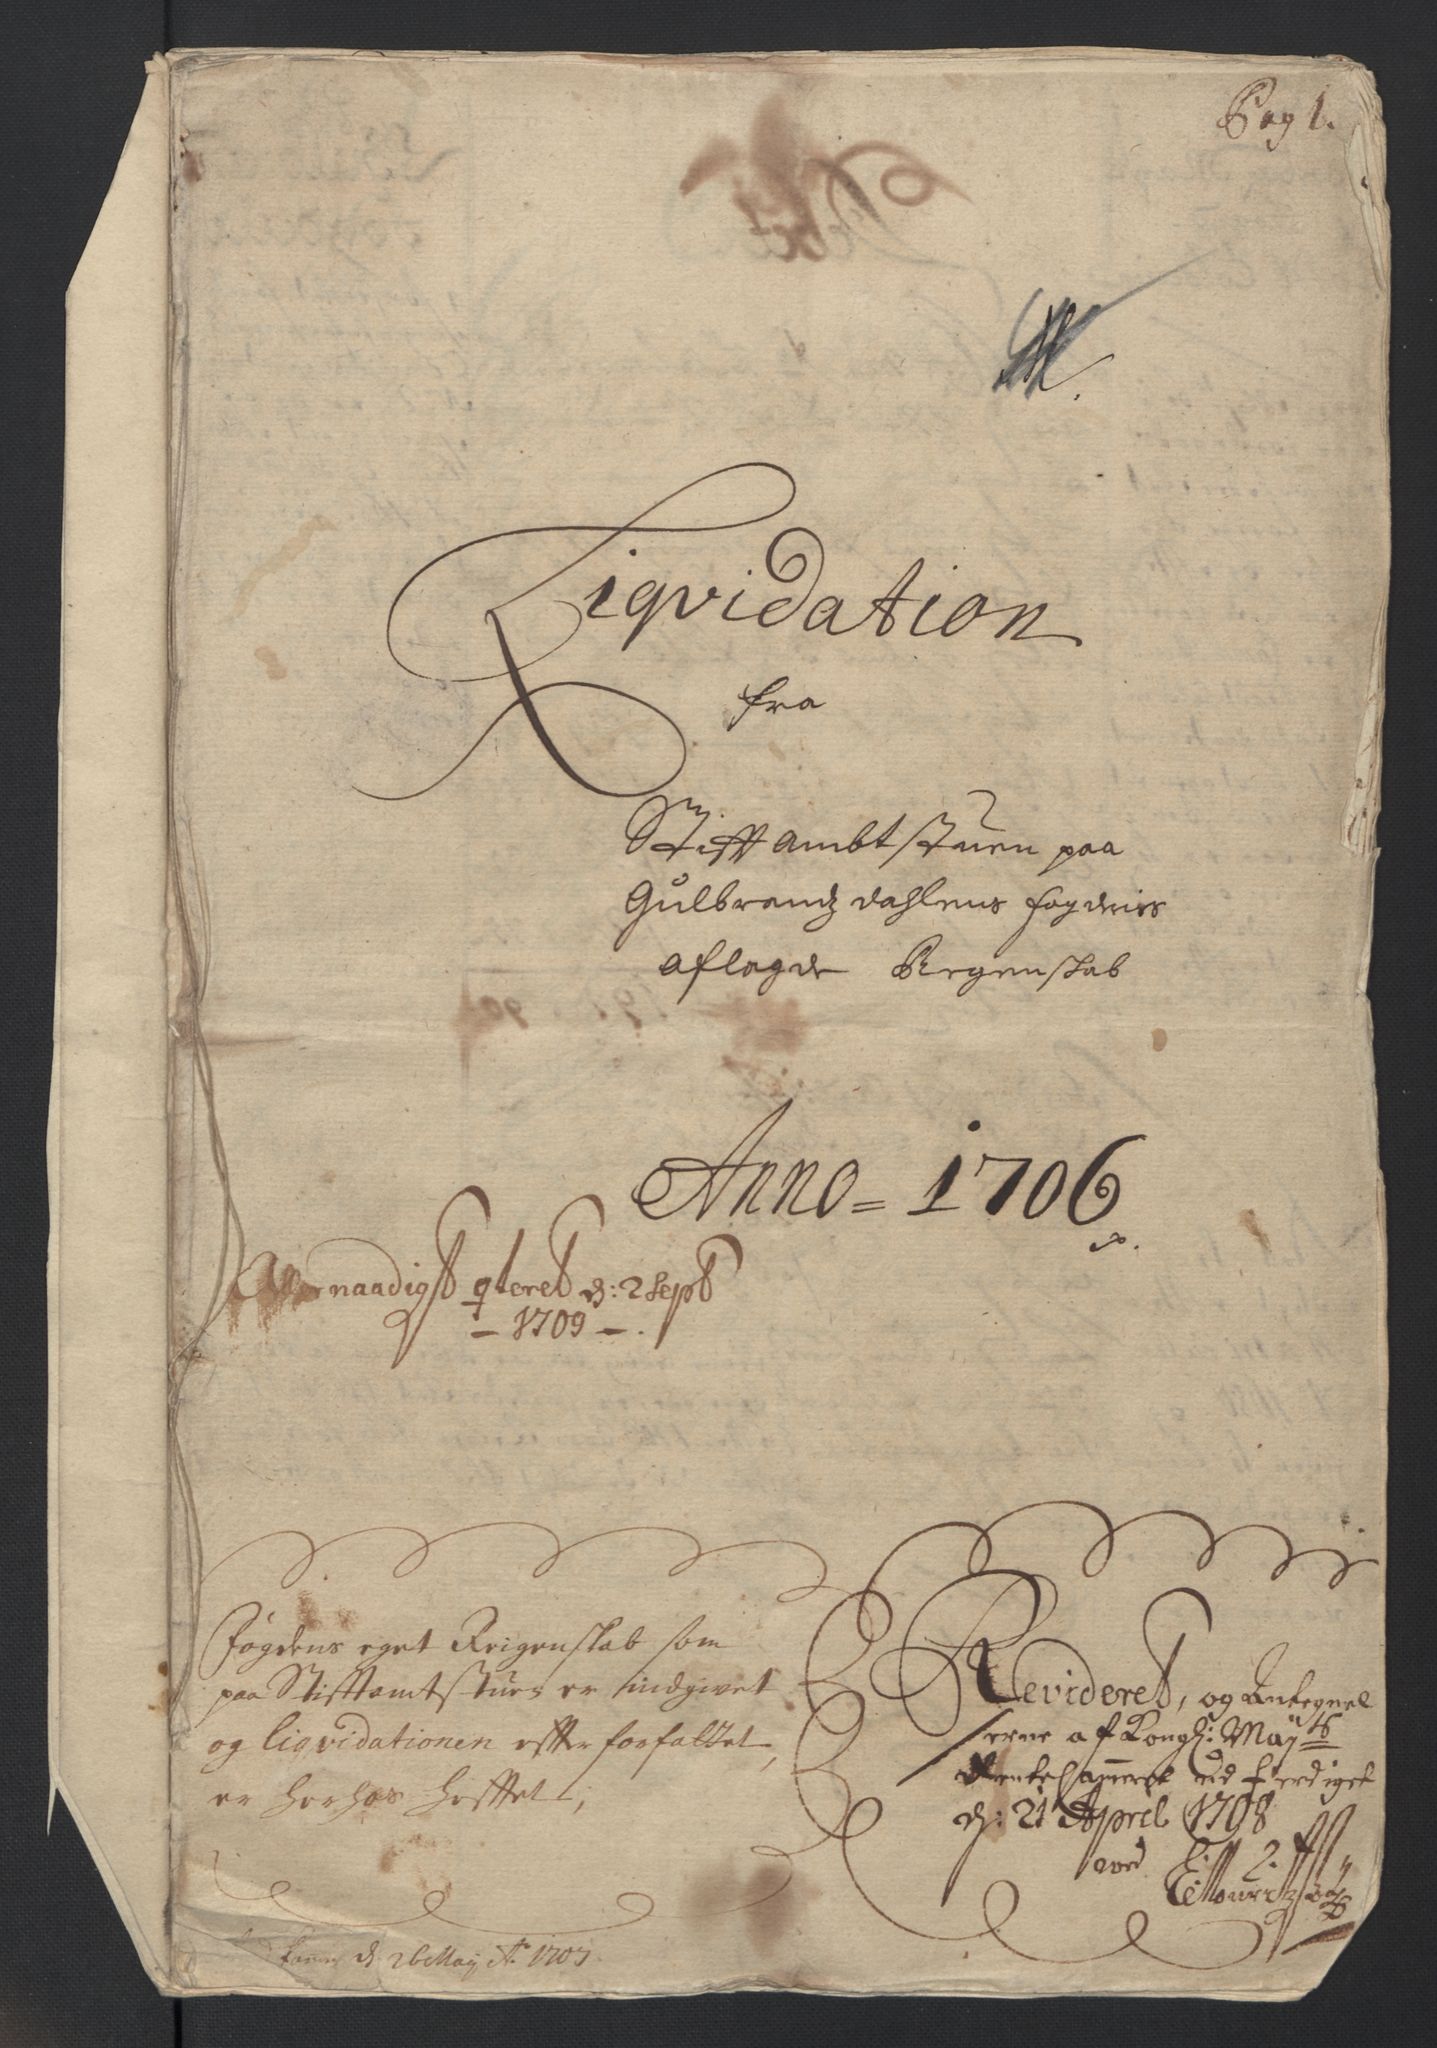 Pag 1.
Liqvidation
fra
Stiftambtstuen paa
Gulbrandzdahlens fogderies
aflagde Regenskab
Anno = 1706
Allernaadigst qteret d: 2 Sept
- 1709 -.
Fogdens eget Reigenskab som
paa Stiftamtstuen er indgivet
og liqvidationen effter forfattet,
er herhos hefftet;
Revideret, og Antegnel
serne af Kongl: Maytz
Rentekammeret udferdiget
d: 21 Aprel 1708
ved
d 26 May Ao. 1707